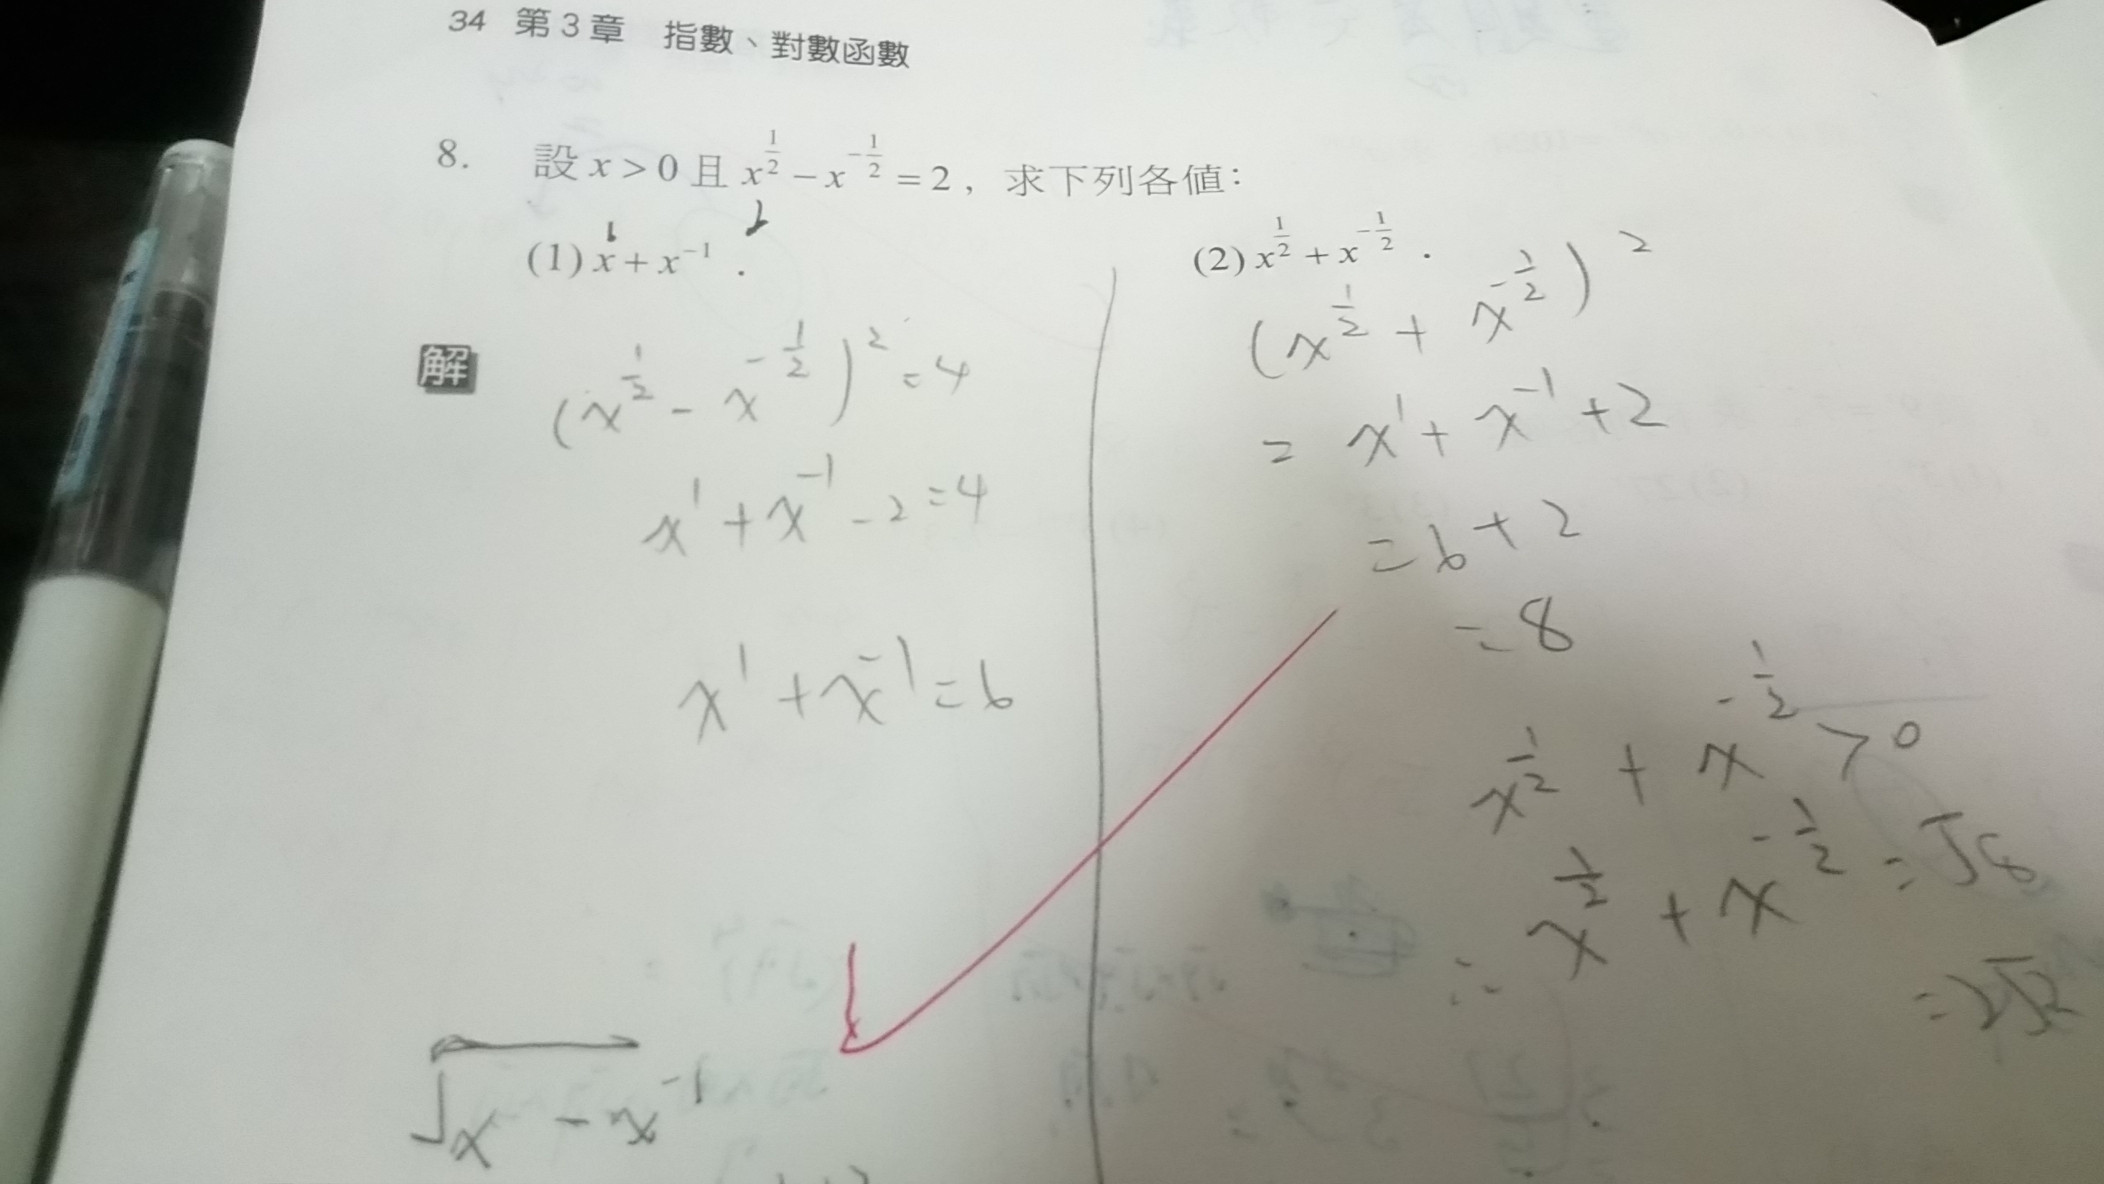 34 第3章 指數、對數函數
8. 設 x > 0 且 x^{1/2} - x^{-1/2} = 2，求下列各值：
(1) x^1 + x^{-1}．
(2) x^{1/2} + x^{-1/2}．
解
(x^{1/2} - x^{-1/2})^2 = 4
x^1 + x^{-1} - 2 = 4
x^1 + x^{-1} = 6
√x - x^{-1}
(x^{1/2} + x^{-1/2})^2
= x^1 + x^{-1} + 2
= 6 + 2
= 8
x^{1/2} + x^{-1/2} > 0
∴ x^{1/2} + x^{-1/2} = √8
= 2√2